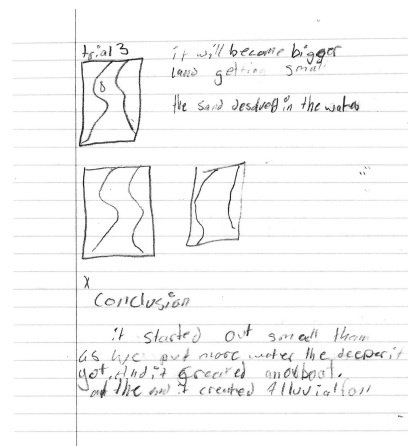 trial 3
it will become bigger
land getting small
the sand desolved in the water
Conclusion
it started out small then
as we put more water the deeper it
got. And it created an
at the end it created Alluvial fan